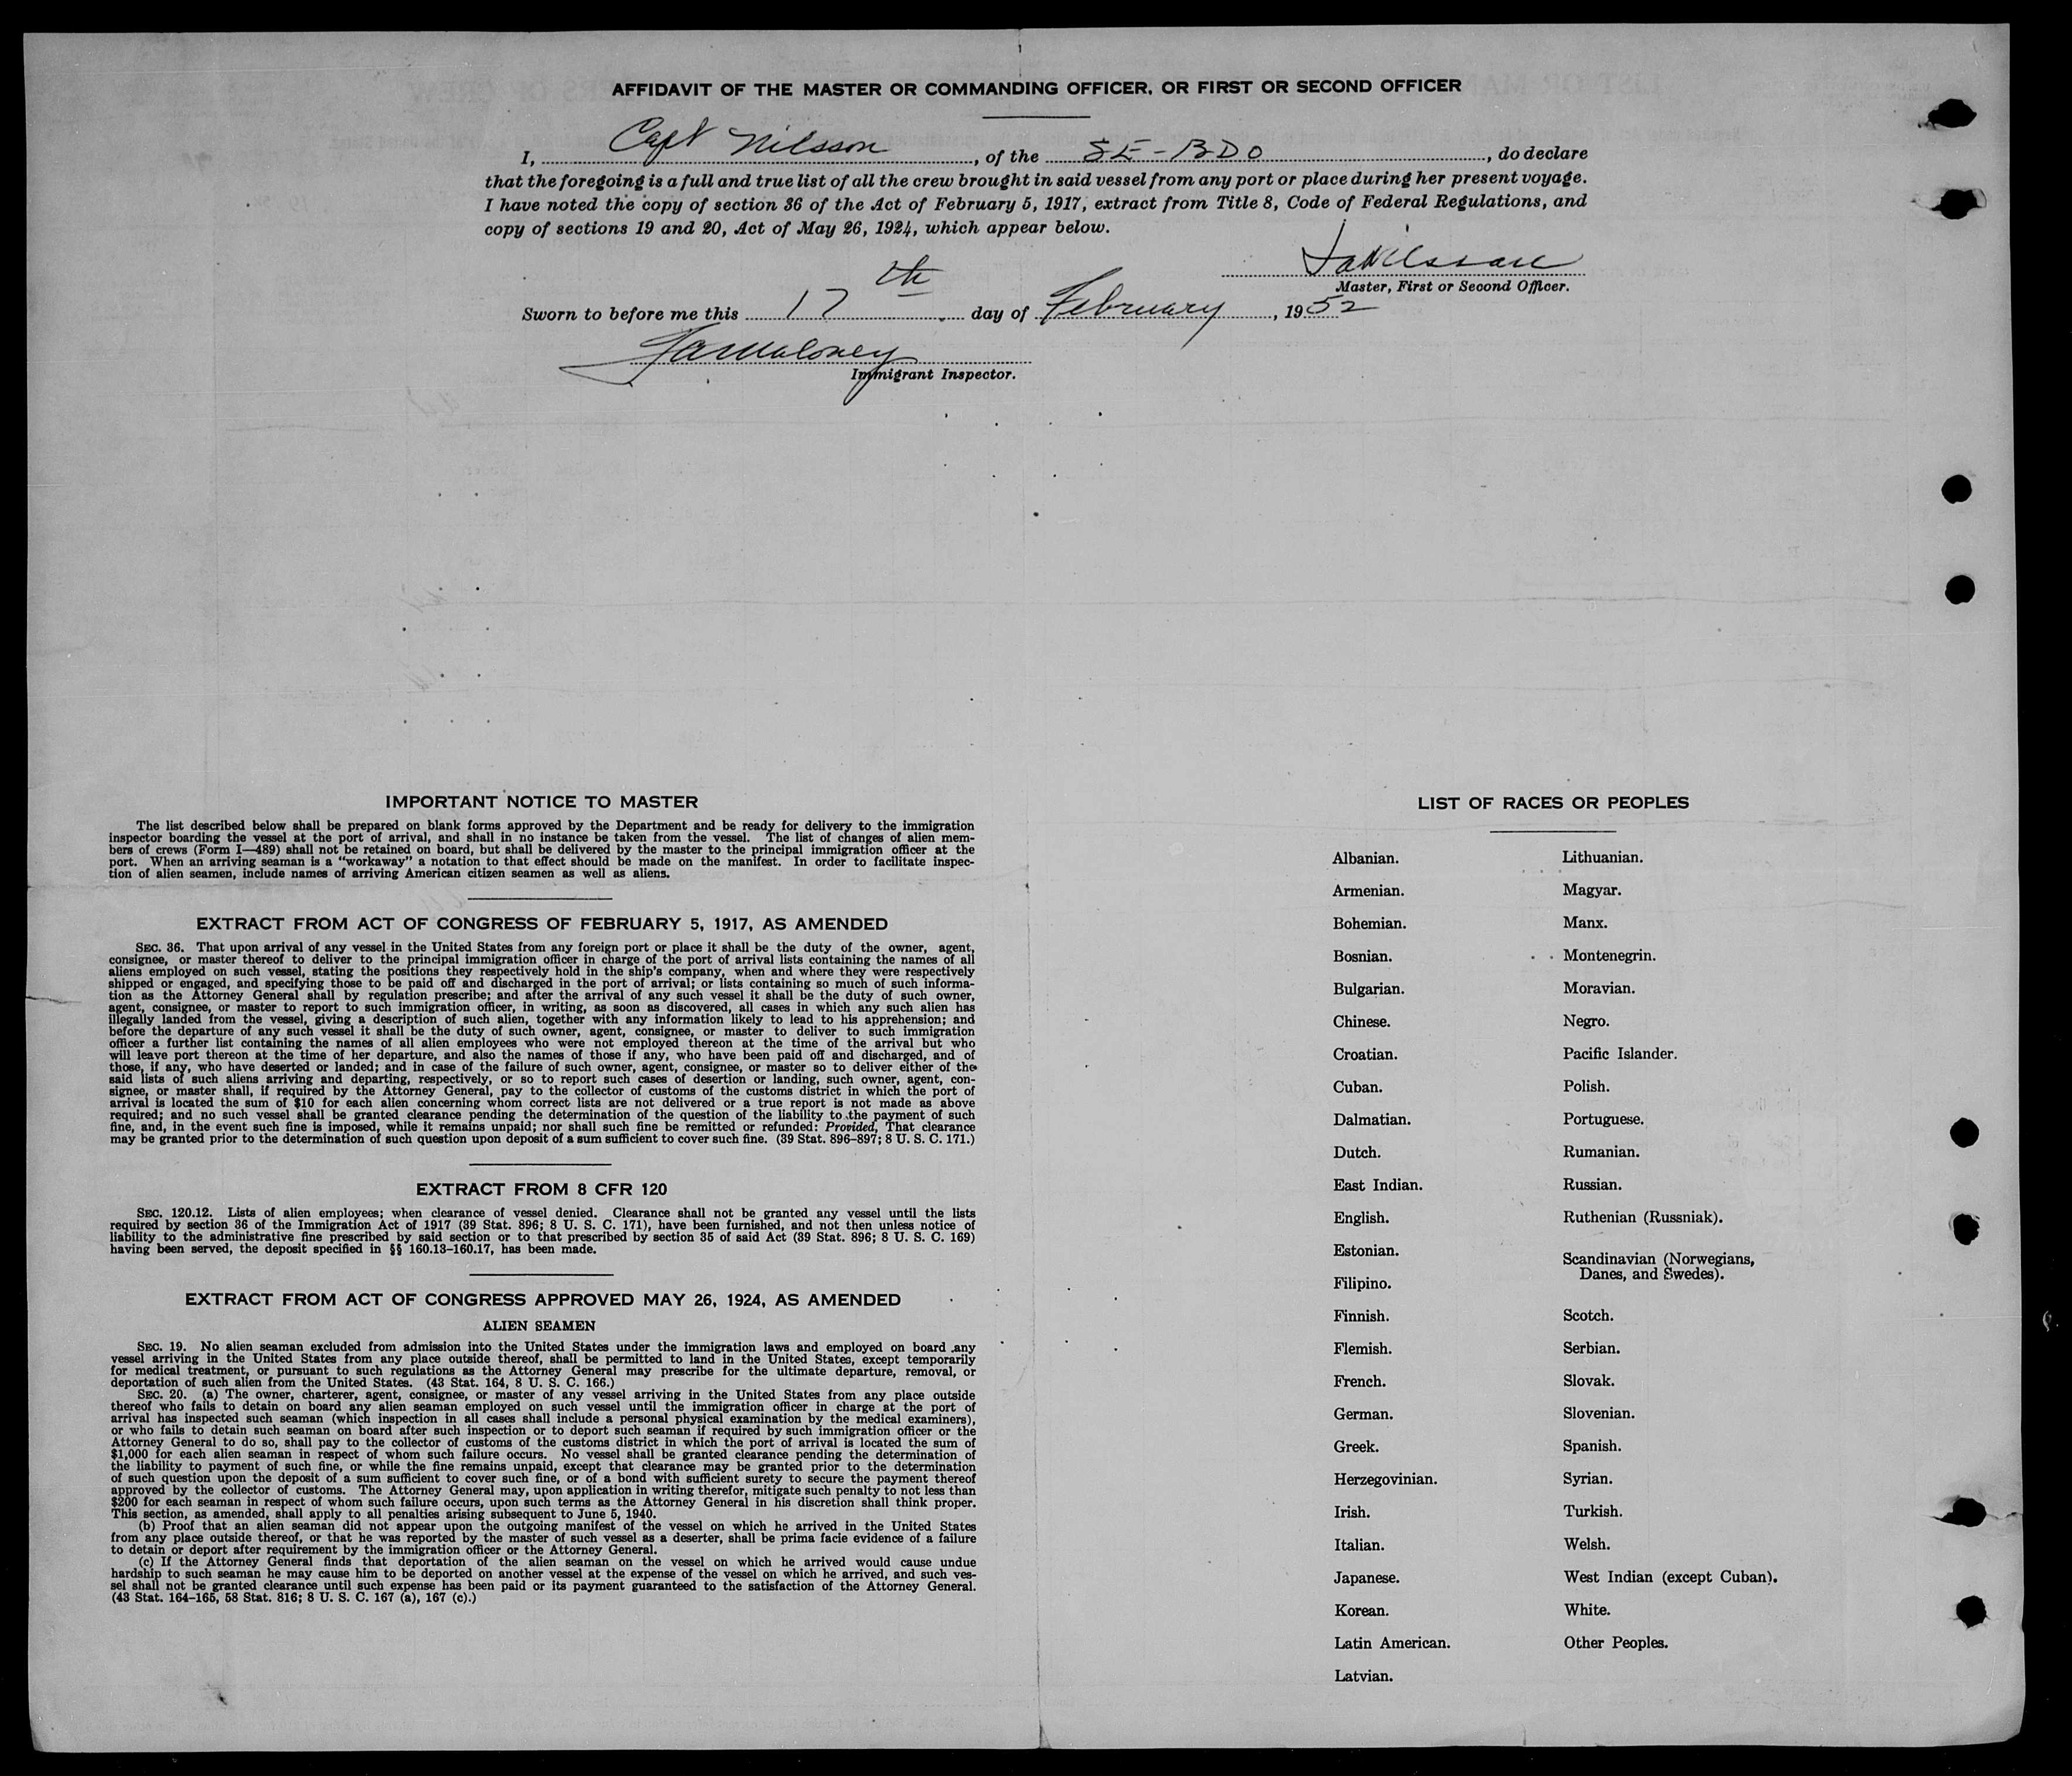 AFFIDAVIT OF THE MASTER OR COMMANDING OFFICER, OR FIRST OR SECOND OFFICER
I, Capt Nilsson, of the SE-BDO, do declare
that the foregoing is a full and true list of all the crew brought in said vessel from any port or place during her present voyage.
I have noted the copy of section 36 of the Act of February 5, 1917, extract from Title 8, Code of Federal Regulations, and
copy of sections 19 and 20, Act of May 26, 1924, which appear below.
Nilsson
Master, First or Second Officer.
Sworn to before me this 17th day of February, 1952
Maloney
Immigrant Inspector.
IMPORTANT NOTICE TO MASTER
The list described below shall be prepared on blank forms approved by the Department and be ready for delivery to the immigration
inspector boarding the vessel at the port of arrival, and shall in no instance be taken from the vessel. The list of changes of alien mem-
bers of crews (Form I—489) shall not be retained on board, but shall be delivered by the master to the principal immigration officer at the
port. When an arriving seaman is a "workaway" a notation to that effect should be made on the manifest. In order to facilitate inspec-
tion of alien seamen, include names of arriving American citizen seamen as well as aliens.
EXTRACT FROM ACT OF CONGRESS OF FEBRUARY 5, 1917, AS AMENDED
SEC. 36. That upon arrival of any vessel in the United States from any foreign port or place it shall be the duty of the owner, agent,
consignee, or master thereof to deliver to the principal immigration officer in charge of the port of arrival lists containing the names of all
aliens employed on such vessel, stating the positions they respectively hold in the ship's company, when and where they were respectively
shipped or engaged, and specifying those to be paid off and discharged in the port of arrival; or lists containing so much of such informa-
tion as the Attorney General shall by regulation prescribe; and after the arrival of any such vessel it shall be the duty of such owner,
agent, consignee, or master to report to such immigration officer, in writing, as soon as discovered, all cases in which any such alien has
illegally landed from the vessel, giving a description of such alien, together with any information likely to lead to his apprehension; and
before the departure of any such vessel it shall be the duty of such owner, agent, consignee, or master to deliver to such immigration
officer a further list containing the names of all alien employees who were not employed thereon at the time of the arrival but who
will leave port thereon at the time of her departure, and also the names of those if any, who have been paid off and discharged, and of
those, if any, who have deserted or landed; and in case of the failure of such owner, agent, consignee, or master so to deliver either of the
said lists of such aliens arriving and departing, respectively, or so to report such cases of desertion or landing, such owner, agent, con-
signee, or master shall, if required by the Attorney General, pay to the collector of customs of the customs district in which the port of
arrival is located the sum of $10 for each alien concerning whom correct lists are not delivered or a true report is not made as above
required; and no such vessel shall be granted clearance pending the determination of the question of the liability to the payment of such
fine, and, in the event such fine is imposed, while it remains unpaid; nor shall such fine be remitted or refunded: Provided, That clearance
may be granted prior to the determination of such question upon deposit of a sum sufficient to cover such fine. (39 Stat. 896–897; 8 U. S. C. 171.)
EXTRACT FROM 8 CFR 120
SEC. 120.12. Lists of alien employees; when clearance of vessel denied. Clearance shall not be granted any vessel until the lists
required by section 36 of the Immigration Act of 1917 (39 Stat. 896; 8 U. S. C. 171), have been furnished, and not then unless notice of
liability to the administrative fine prescribed by said section or to that prescribed by section 35 of said Act (39 Stat. 896; 8 U. S. C. 169)
having been served, the deposit specified in §§ 160.13–160.17, has been made.
EXTRACT FROM ACT OF CONGRESS APPROVED MAY 26, 1924, AS AMENDED
ALIEN SEAMEN
SEC. 19. No alien seaman excluded from admission into the United States under the immigration laws and employed on board any
vessel arriving in the United States from any place outside thereof, shall be permitted to land in the United States, except temporarily
for medical treatment, or pursuant to such regulations as the Attorney General may prescribe for the ultimate departure, removal, or
deportation of such alien from the United States. (43 Stat. 164, 8 U. S. C. 166.)
SEC. 20. (a) The owner, charterer, agent, consignee, or master of any vessel arriving in the United States from any place outside
thereof who fails to detain on board any alien seaman employed on such vessel until the immigration officer in charge at the port of
arrival has inspected such seaman (which inspection in all cases shall include a personal physical examination by the medical examiners),
or who fails to detain such seaman on board after such inspection or to deport such seaman if required by such immigration officer or the
Attorney General to do so, shall pay to the collector of customs of the customs district in which the port of arrival is located the sum of
$1,000 for each alien seaman in respect of whom such failure occurs. No vessel shall be granted clearance pending the determination of
the liability to payment of such fine, or while the fine remains unpaid, except that clearance may be granted prior to the determination
of such question upon the deposit of a sum sufficient to cover such fine, or of a bond with sufficient surety to secure the payment thereof
approved by the collector of customs. The Attorney General may, upon application in writing therefor, mitigate such penalty to not less than
$200 for each seaman in respect of whom such failure occurs, upon such terms as the Attorney General in his discretion shall think proper.
This section, as amended, shall apply to all penalties arising subsequent to June 5, 1940.
(b) Proof that an alien seaman did not appear upon the outgoing manifest of the vessel on which he arrived in the United States
from any place outside thereof, or that he was reported by the master of such vessel as a deserter, shall be prima facie evidence of a failure
to detain or deport after requirement by the immigration officer or the Attorney General.
(c) If the Attorney General finds that deportation of the alien seaman on the vessel on which he arrived would cause undue
hardship to such seaman he may cause him to be deported on another vessel at the expense of the vessel on which he arrived, and such ves-
sel shall not be granted clearance until such expense has been paid or its payment guaranteed to the satisfaction of the Attorney General.
(43 Stat. 164–165, 58 Stat. 816; 8 U. S. C. 167 (a), 167 (c).)
LIST OF RACES OR PEOPLES
Albanian.
Armenian.
Bohemian.
Bosnian.
Bulgarian.
Chinese.
Croatian.
Cuban.
Dalmatian.
Dutch.
East Indian.
English.
Estonian.
Filipino.
Finnish.
Flemish.
French.
German.
Greek.
Herzegovinian.
Irish.
Italian.
Japanese.
Korean.
Latin American.
Latvian.
Lithuanian.
Magyar.
Manx.
Montenegrin.
Moravian.
Negro.
Pacific Islander.
Polish.
Portuguese.
Rumanian.
Russian.
Ruthenian (Russniak).
Scandinavian (Norwegians,
Danes, and Swedes).
Scotch.
Serbian.
Slovak.
Slovenian.
Spanish.
Syrian.
Turkish.
Welsh.
West Indian (except Cuban).
White.
Other Peoples.